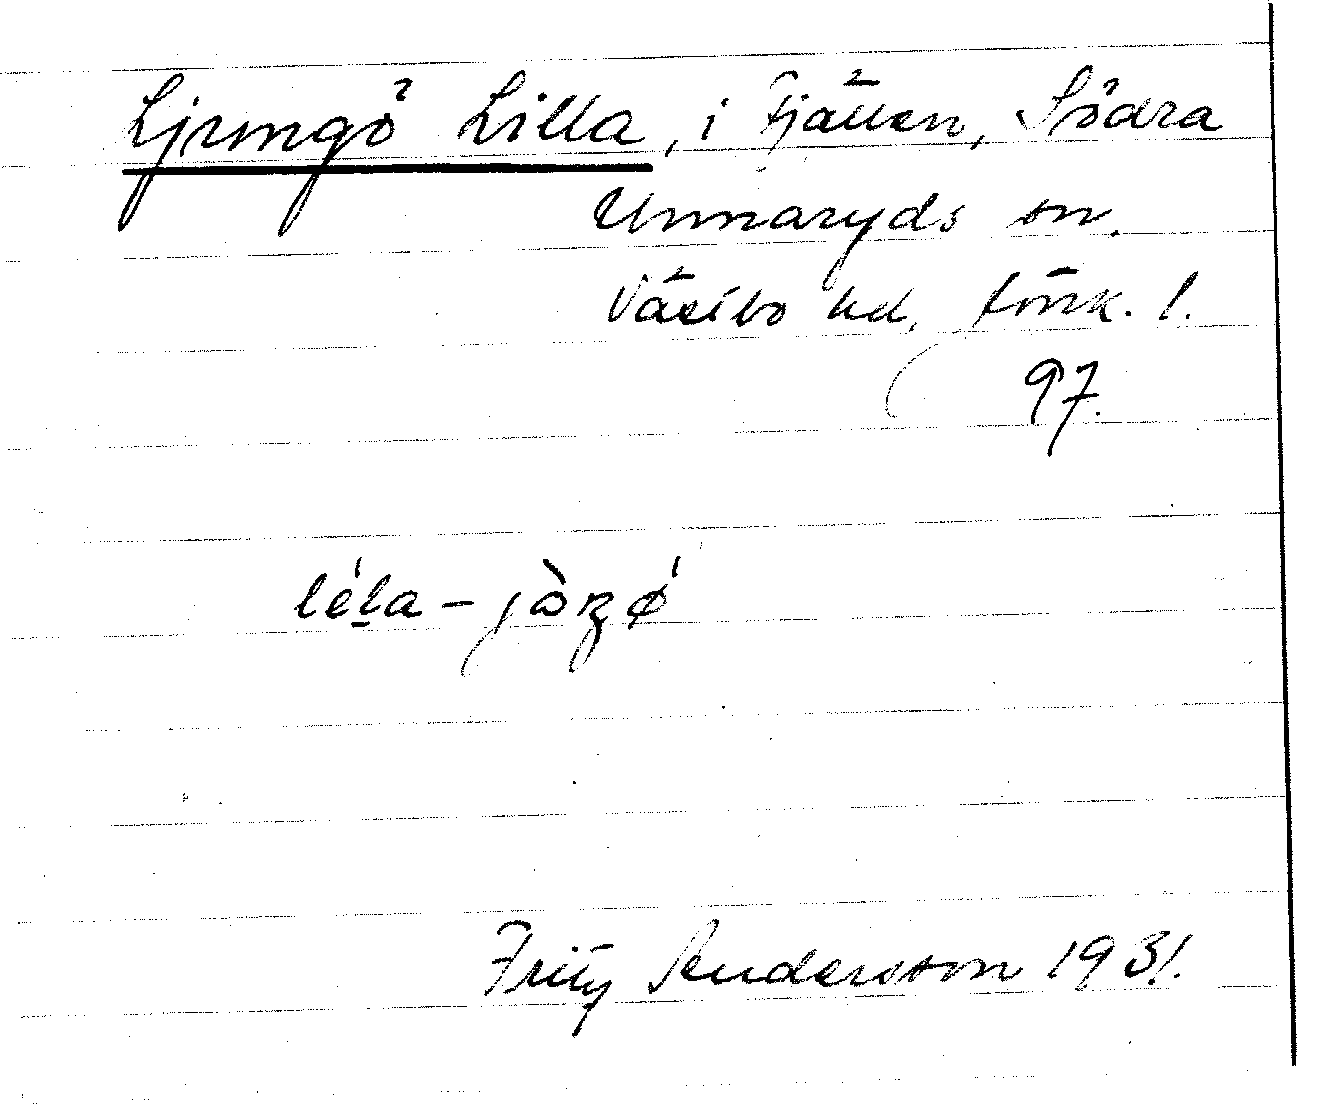 Ljungö Lilla, i Fjällen, Södra
Unnaryds sn.
Västbo hd, Jönk. l.
97.
léla - jòŋø´
Fritz Andersson 1931.